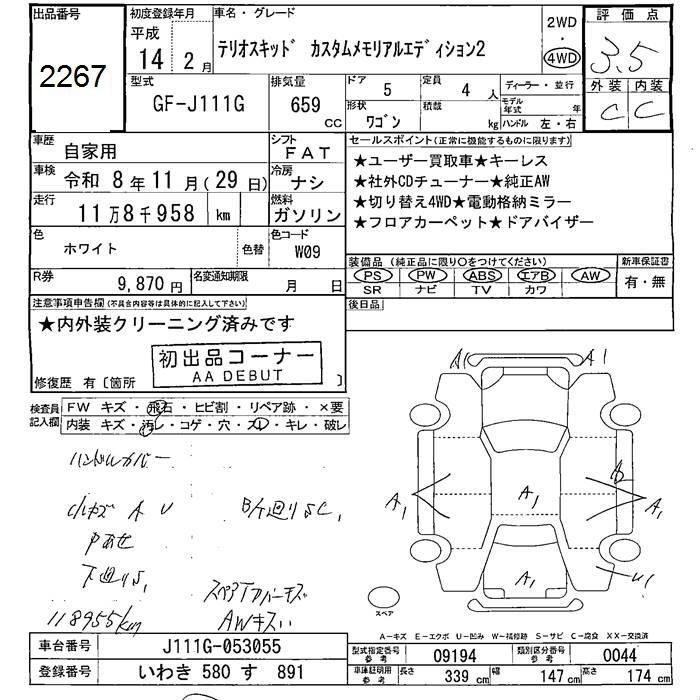 出品番号
2267
初度登録年月
平成
14 2 月
車名・グレード
テリオスキッド カスタムメモリアルエディション2
2WD
・
4WD
評価点
3.5
外装 内装
C C
型式
GF-J111G
排気量
659
CC
ドア 5
定員 4 人
形状 ワゴン
積載 kg
ディーラー・並行
モデル年式 年
ハンドル 左・右
車歴 自家用
シフト FAT
車検 令和 8 年 11 月 (29 日)
冷房 ナシ
走行 11万8千958 km
燃料 ガソリン
色 ホワイト 色替
色コード W09
R券 9,870 円
名変通知期限 月 日
セールスポイント(正常に機能するものに限ります)
★ユーザー買取車★キーレス
★社外CDチューナー★純正AW
★切り替え4WD★電動格納ミラー
★フロアカーペット★ドアバイザー
装備品 (純正品に限り○をつけてください)
新車保証書
PS PW ABS エアB AW
SR ナビ TV カワ
有・無
後日品
注意事項申告欄(不具合内容等は具体的に記入して下さい)
★内外装クリーニング済みです
初出品コーナー
AA DEBUT
修復歴 有〔箇所 〕
検査員記入欄
FW キズ・飛石・ヒビ割・リペア跡・×要
内装 キズ・汚レ・コゲ・穴・スレ・キレ・破レ
ハンドルカバー
A U
下廻りS,
118955km
AWキズ
A1 A1
A1 A1 A1
A1 U1
スペア
A-キズ E-エクボ U-凹み W-補修跡 S-サビ C-腐食 XX-交換済
車台番号 J111G-053055
登録番号 いわき 580 す 891
型式指定番号 参考 09194
類別区分番号 参考 0044
車庫証明用 参考
長さ 339 cm 幅 147 cm 高さ 174 cm